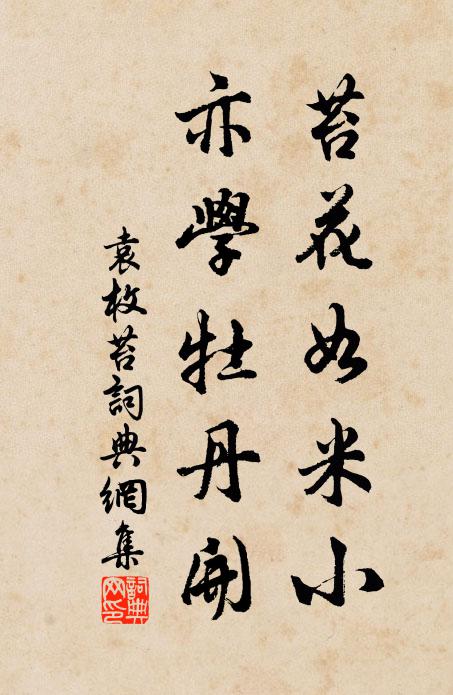 苔花如米小
亦學牡丹開
袁枚苔詞典網集
詞典
网印